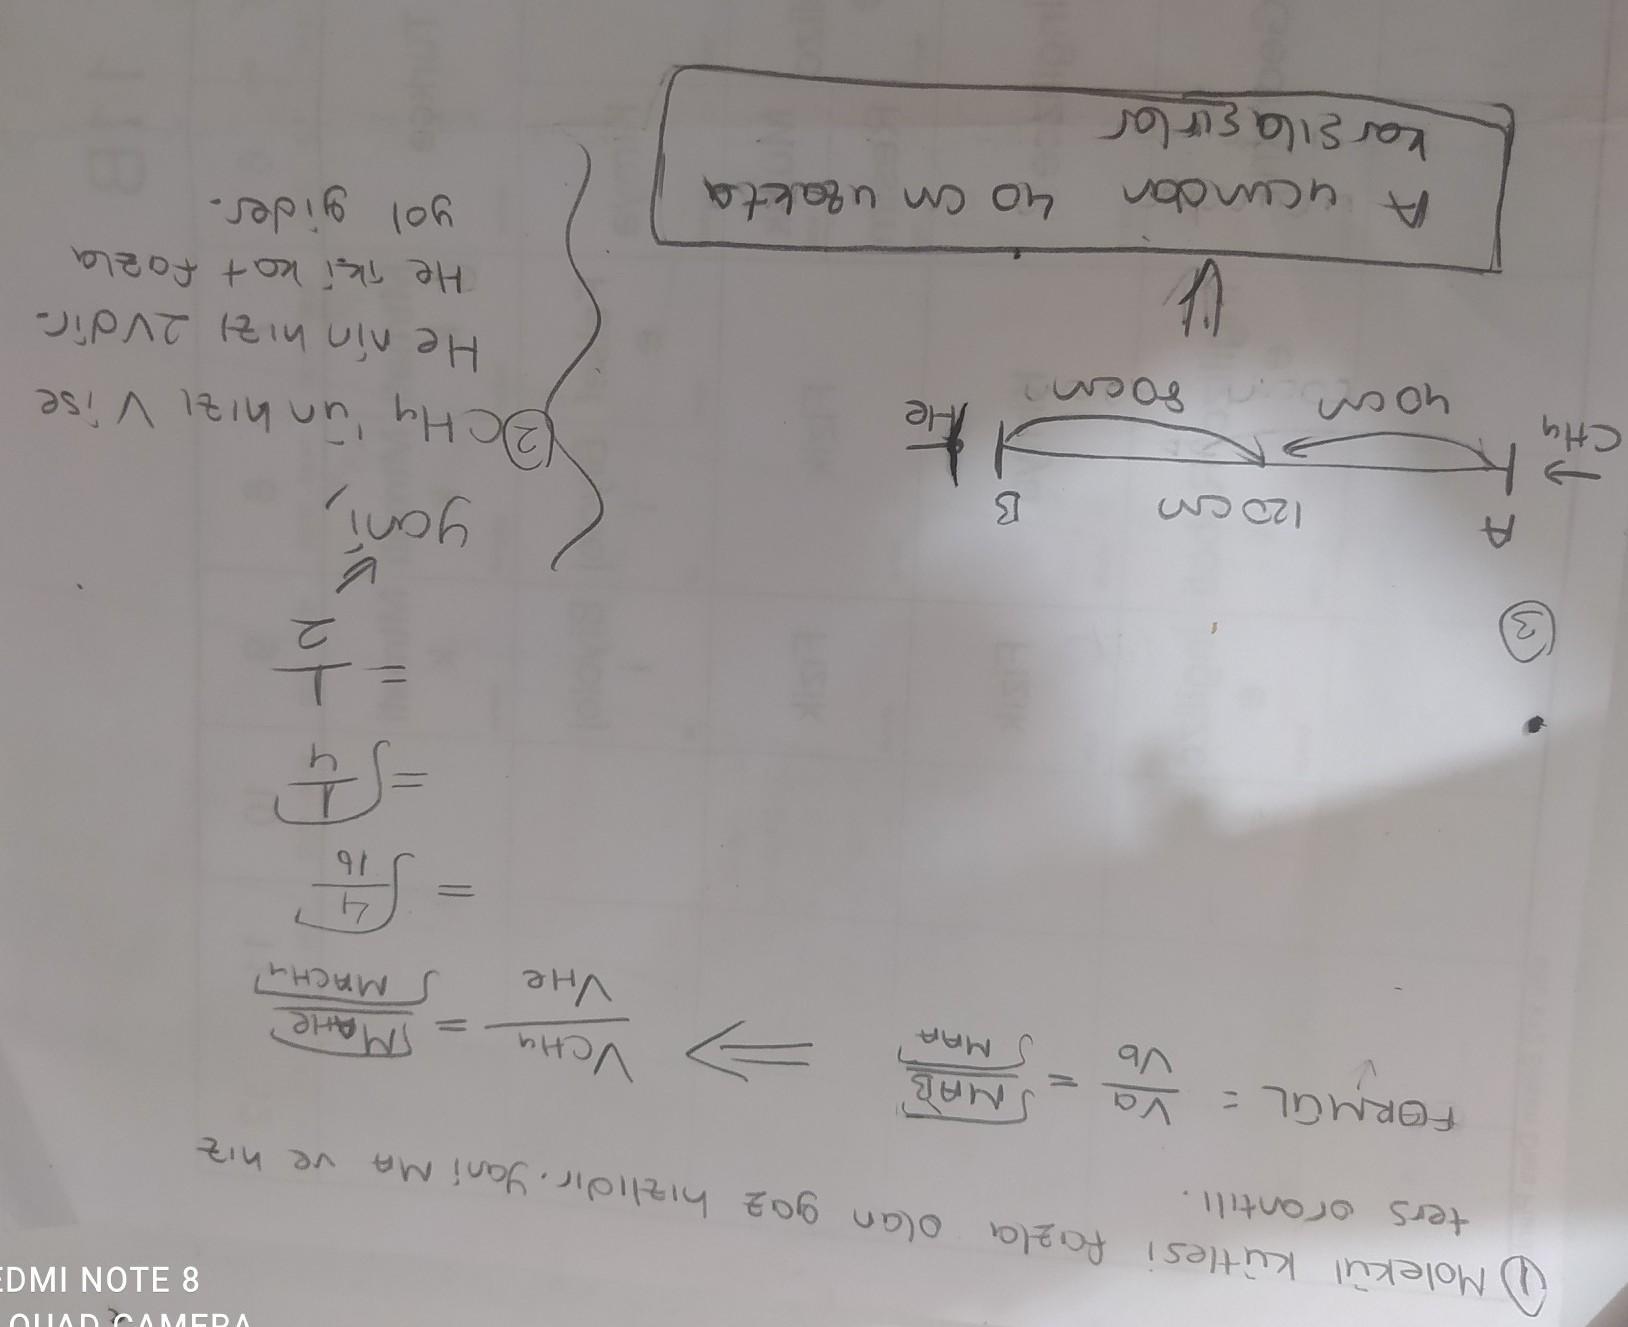 ① Molekül kütlesi fazla olan gaz hızlıdır. Yani MA ve hız
ters orantılı.
FORMÜL = Va / Vb = √MAB / √MAA ⇒ VCH4 / VHe = √MAHe / √MACH4
= √4/16
= √1/4
= 1/2
yani,
② CH4 ün hızı V ise
He nin hızı 2V dir.
He iki kat fazla
yol gider.
③
A 120cm B
CH4 → 40cm 80cm He
⇓
A ucundan 40 cm uzakta
karşılaşırlar
REDMI NOTE 8
QUAD CAMERA